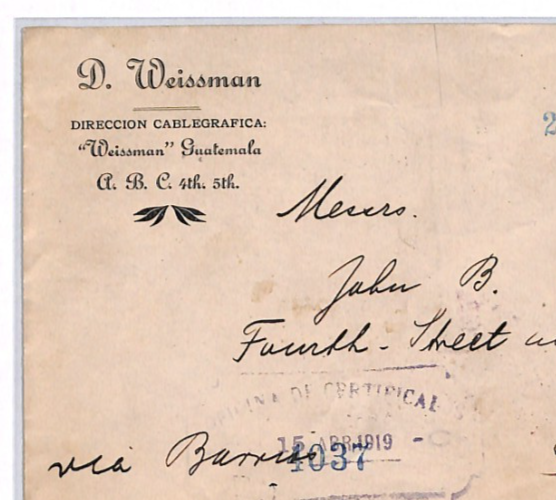 D. Weissman
DIRECCION CABLEGRAFICA:
"Weissman" Guatemala
A. B. C. 4th. 5th.
2
Messrs.
John B.
Fourth - Street
OFICINA DE CERTIFICA
15 ABR 1919
4037
via Barrios